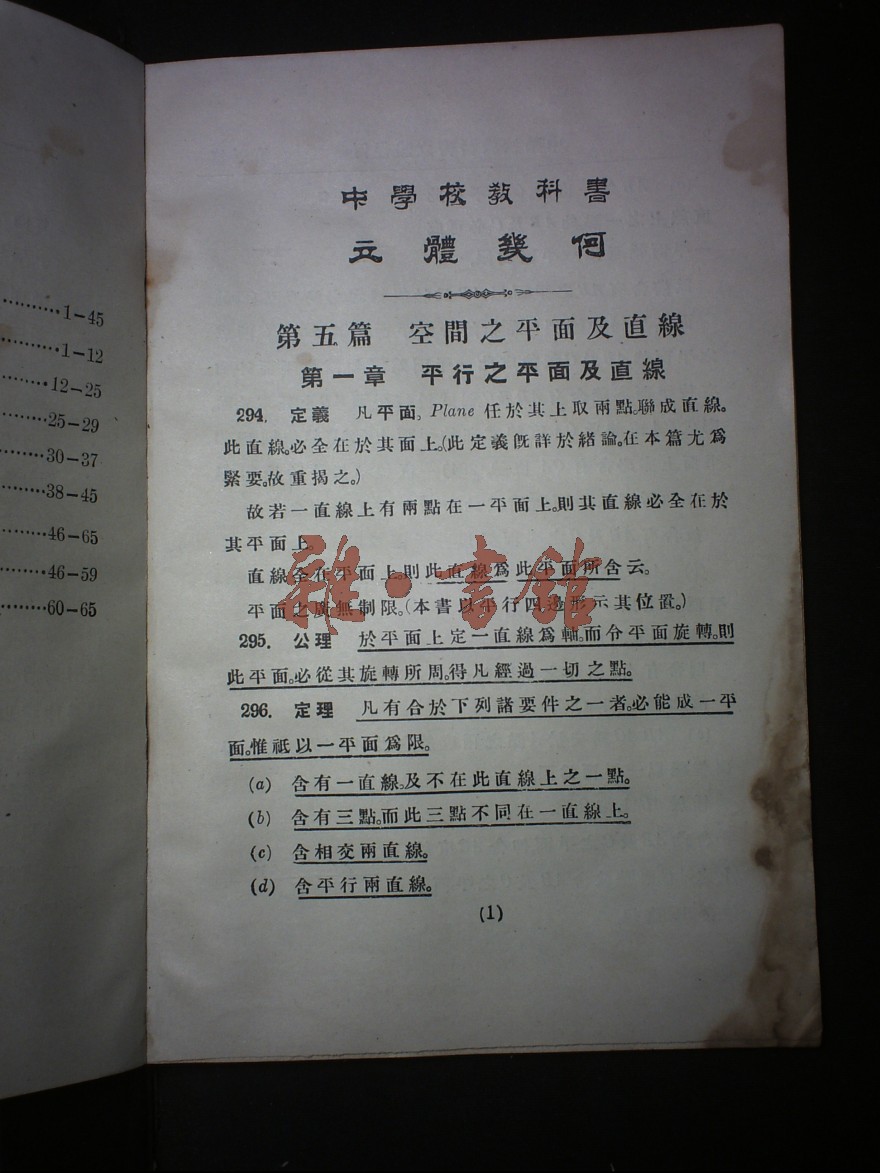 1-45
1-12
12-25
25-29
30-37
38-45
46-65
46-59
60-65
中學校教科書
立體幾何
第五篇 空間之平面及直線
第一章 平行之平面及直線
294. 定義 凡平面。Plane 任於其上取兩點。聯成直線。
此直線。必全在於其面上。(此定義既詳於緒論。在本篇尤爲
緊要。故重揭之。)
故若一直線上有兩點在一平面上。則其直線必全在於
其平面上。
直線全在平面上。則此直線爲此平面所含云。
平面之廣無制限。(本書以平行四邊形示其位置。)
295. 公理 於平面上定一直線爲軸。而令平面旋轉。則
此平面。必從其旋轉所周。得凡經過一切之點。
296. 定理 凡有合於下列諸要件之一者。必能成一平
面。惟祇以一平面爲限。
(a) 含有一直線。及不在此直線上之一點。
(b) 含有三點。而此三點不同在一直線上。
(c) 含相交兩直線。
(d) 含平行兩直線。
(1)
雅·書館